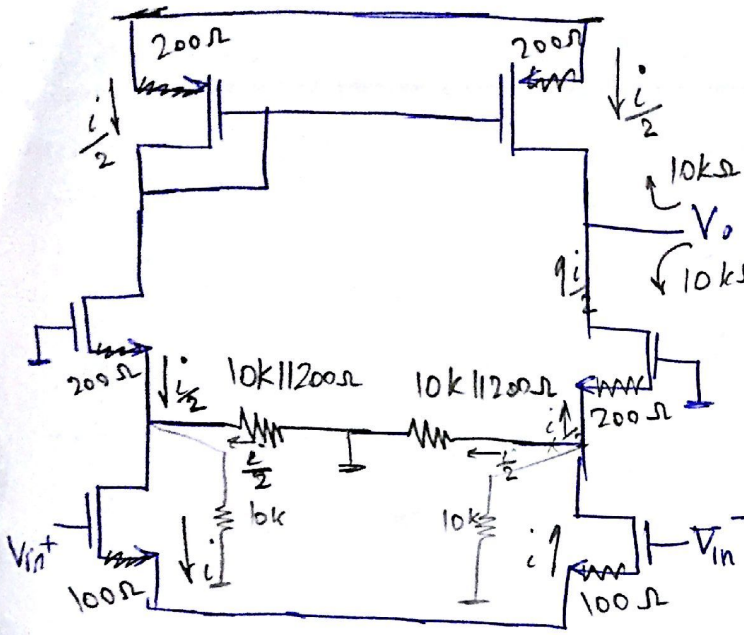 200Ω
200Ω
i/2
i/2
10kΩ
V₀
10kΩ
i/2
200Ω
i/2
10k||200Ω
10k||200Ω
i
200Ω
i/2
i/2
10k
10k
Vin+
i
i
Vin-
100Ω
100Ω